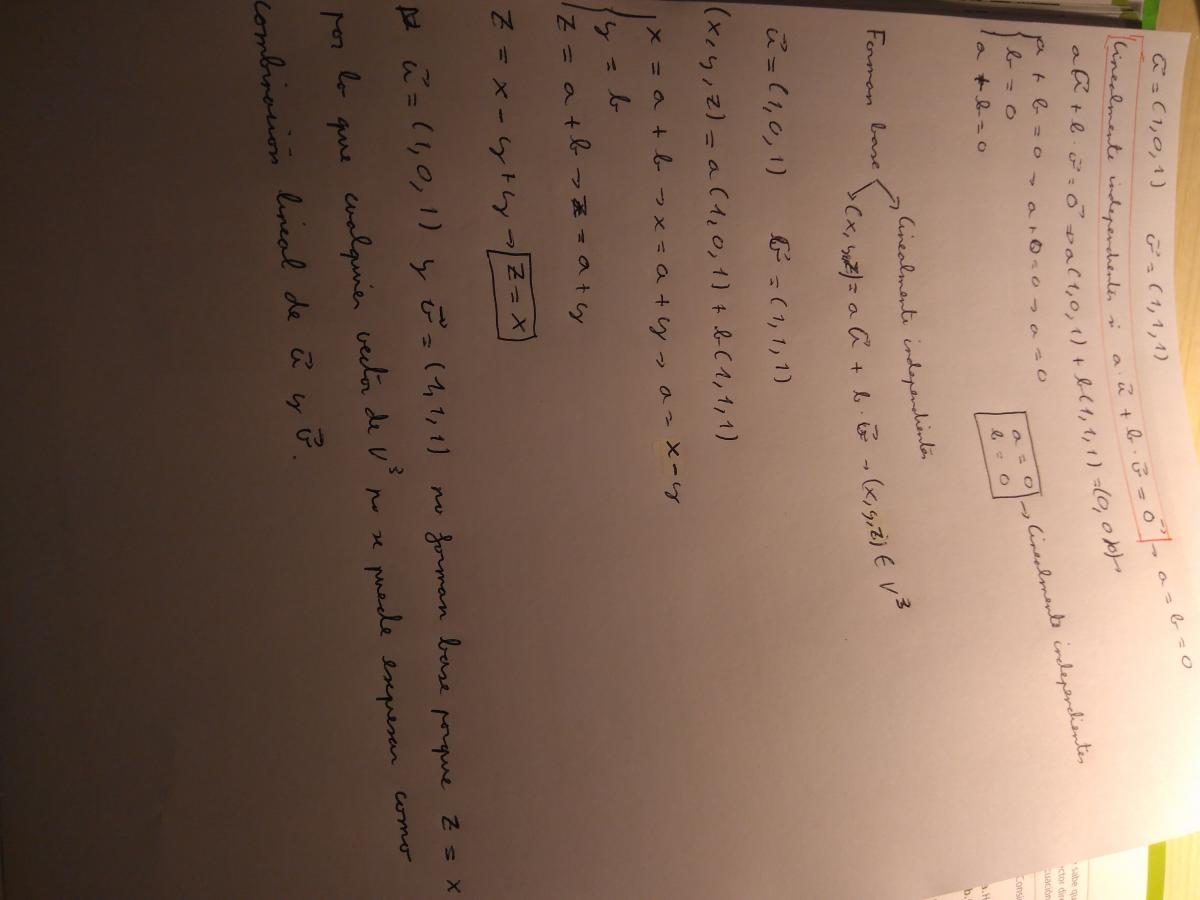 u⃗ = (1,0,1) v⃗ = (1,1,1)
Linealmente independientes si a·u⃗ + b·v⃗ = 0⃗ → a = b = 0
au⃗ + b·v⃗ = 0⃗ → a(1,0,1) + b(1,1,1) = (0,0,0) →
a + b = 0 → a + 0 = 0 → a = 0
b = 0
a + b = 0
a = 0
b = 0 → linealmente independientes
Forman base → linealmente independientes
→ (x,y,z) = au⃗ + b·v⃗ → (x,y,z) ∈ V³
u⃗ = (1,0,1) v⃗ = (1,1,1)
(x,y,z) = a(1,0,1) + b(1,1,1)
x = a + b → x = a + y → a = x - y
y = b
z = a + b → z = a + y
z = x - y + y → z = x
u⃗ = (1,0,1) y v⃗ = (1,1,1) no forman base porque z = x
por lo que cualquier vector de V³ no se puede expresar como
combinación lineal de u⃗ y v⃗.